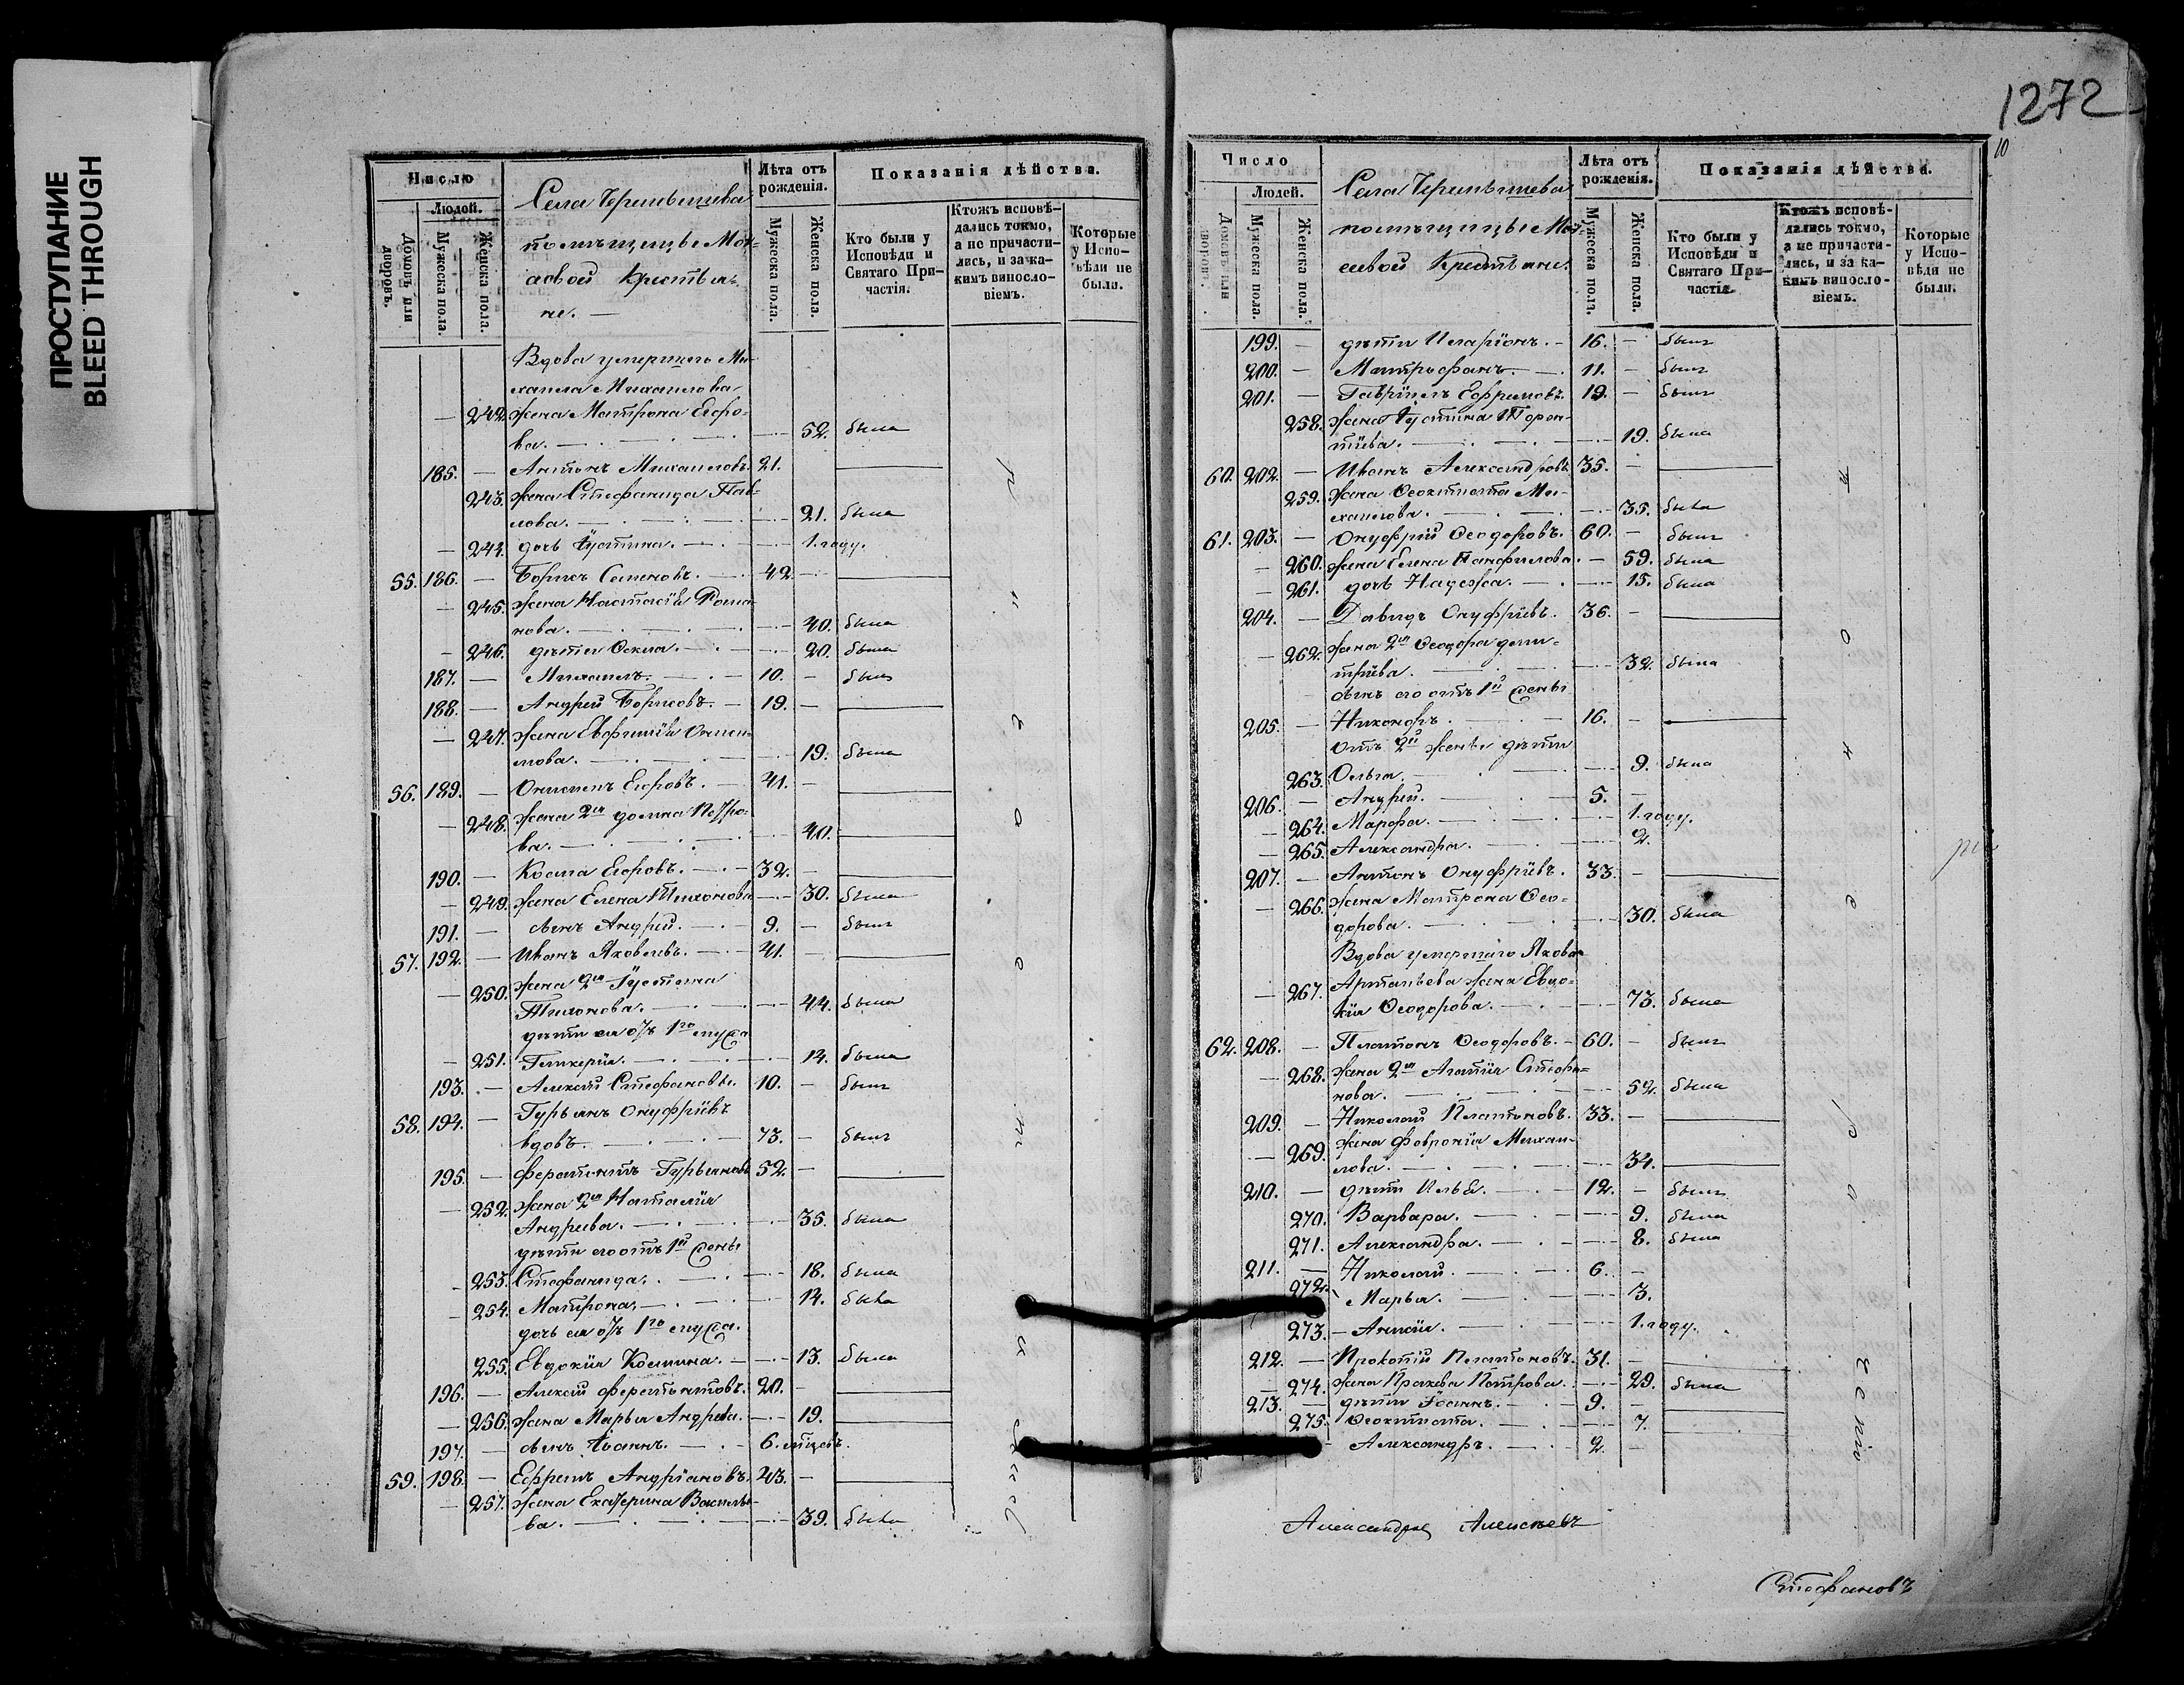 ПРОСТУПАНИЕ
BLEED THROUGH
Число
Людей.
Домовъ или дворовъ.
Мужеска пола.
Женска пола.
Села
помѣщицы
Крестья-
не. —
Лѣта отъ рожденія.
Мужеска пола.
Женска пола.
Показанія дѣйства.
Кто были у Исповѣди и Святаго При-частія.
Ктожъ исповѣ-дались токмо, а не причасти-лись, и за ка-кимъ виносло-віемъ.
Которые у Испо-вѣди не были.
Вдова умершаго Ми-
хаила Михаилова
— 242. жена Матрона Егоро-
ва. — 52. была
185. — Антонъ Михаиловъ. 21.
243. жена Стефанида Пав-
лова. — 21. была
— 244. дочь Іустина. — 1. году.
55. 186. — Борисъ Семеновъ. 42. —
— 245. жена Настасія Рома-
нова. — 40. была
— 246. дѣти Фекла. — 20. была
187. — Михаилъ. — 10. — былъ
188. — Андрей Борисовъ. — 19. —
— 247. жена Евфимія
19. была
56. 189. — Егоровъ. — 41. —
— 248. жена 2я Домна Петро-
ва. — 40.
190. — Косма Егоровъ. — 32. —
— 249. жена Елена Тихонова — 30. была
191. — сынъ Андрей. — 9. — былъ
57. 192. — Иванъ Яковлевъ. — 41. —
— 250. жена 2я Іустина
Тихонова. — 44. была
дѣти ея отъ 1го мужа
— 251. Гликерія. — 14. была
193. — Алексѣй Стефановъ. 10. — былъ
58. 194. — Гурьянъ Онуфріевъ
вдовъ. — 73. — былъ
195. — Ферапонтъ Гурьяновъ 52. —
— 252. жена 2я Наталія
Андреева. — 35. была
дѣти его отъ 1й жены
— 253. Стефанида. — 18. была
— 254. Матрона. — 14. была
дочь ея отъ 1го мужа.
255. Евдокія Космина. — 13. была
196. — Алексѣй Ферапонтовъ. 20. —
— 256. жена Марья Андреева. — 19.
197. — сынъ Іоаннъ. — 6. мѣсецъ.
59. 198. — Ефремъ Андріановъ. 43. —
— 257. жена Екатерина Василье-
ва. — 39. была
1272
10
Число
Людей.
Домовъ или дворовъ.
Мужеска пола.
Женска пола.
Села
помѣщицы
Крестьяне.
Лѣта отъ рожденія.
Мужеска пола.
Женска пола.
Показанія дѣйства.
Кто были у Исповѣди и Святаго При-частія.
Ктожъ исповѣ-дались токмо, а не причасти-лись, и за ка-кимъ виносло-віемъ.
Которые у Испо-вѣди не были.
199. — дѣти Иларіонъ. — 16. — былъ
200. — Митрофанъ. — 11. — былъ
201. — Гавріилъ Ефремовъ. 19. — былъ
258. жена Іустина Терен-
тіева. — 19. была
60. 202. — Иванъ Александровъ 35. —
259. жена Феоктиста Ми-
хаилова. — 35. была
61. 203. — Онуфрій Феодоровъ. 60. — былъ
— 260. жена Елена Панфилова. — 59. была
— 261. дочь Надежа. — 15. была
204. — Давидъ Онуфріевъ. 36. —
— 262. жена 2я Феодора Дими-
тріева. — 32. была
сынъ его отъ 1й жены
205. — Никаноръ. — 16. —
отъ 2й жены дѣти
263. Ольга. — 9. была
206. — Андрей. — 5. —
— 264. Марфа. — 1. году.
— 265. Александра. — 2.
207. — Антонъ Онуфріевъ. 33. —
— 266. жена Матрона Фео-
дорова. — 30. была
Вдова умершаго Якова
— 267. жена Евдо-
кія Феодорова. — 73. была
62. 208. — Платонъ Феодоровъ. — 60. — былъ
— 268. жена 2я Агапія Стефа-
нова. — 52. была
209. — Николай Платоновъ. 33. —
— 269. жена Февронія Михаи-
лова. — 34.
210. — дѣти Илья. — 12. — былъ
270. Варвара. — 9. была
271. Александра. — 8. была
211. — Николай. — 6. —
272. Марья. — 3.
273. — Анисія. — 1. году.
212. — Прокопій Платоновъ. 31. —
— 274. жена Праскева Петрова. — 29. была
213. — дѣти Іоаннъ. — 9. —
275. Феоктиста. — 7.
Александръ. — 2. —
Александръ Алексѣевъ
Стефановъ